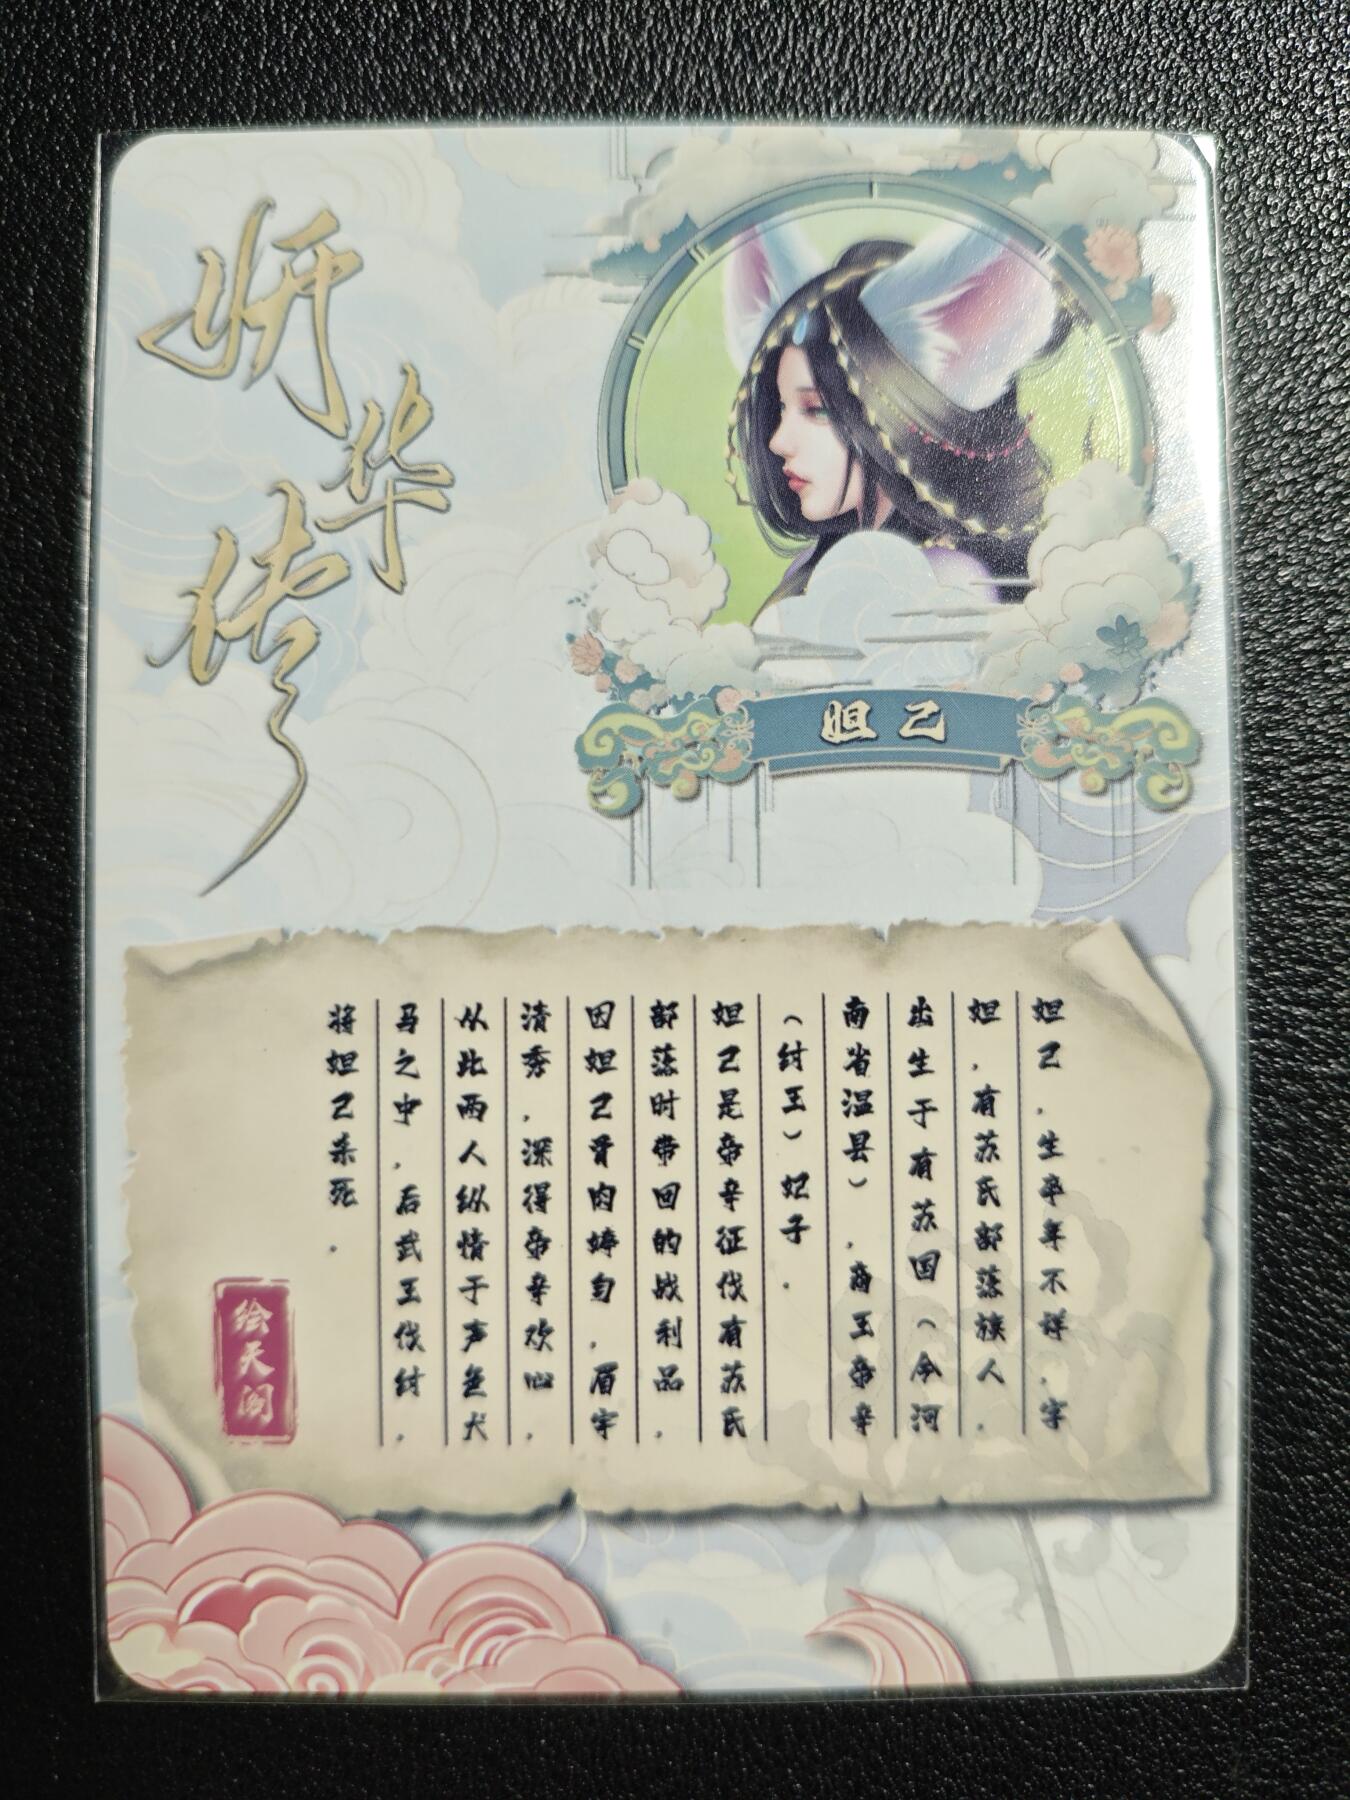 妍华传
妲己
妲己，生卒年不详，字
妲，有苏氏部落族人，
出生于有苏国（今河
南省温县），商王帝辛
（纣王）妃子。
妲己是帝辛征伐有苏氏
部落时带回的战利品，
因妲己骨肉婷匀，眉宇
清秀，深得帝辛欢心，
从此两人纵情于声色犬
马之中，后武王伐纣，
将妲己杀死。
绘天阁